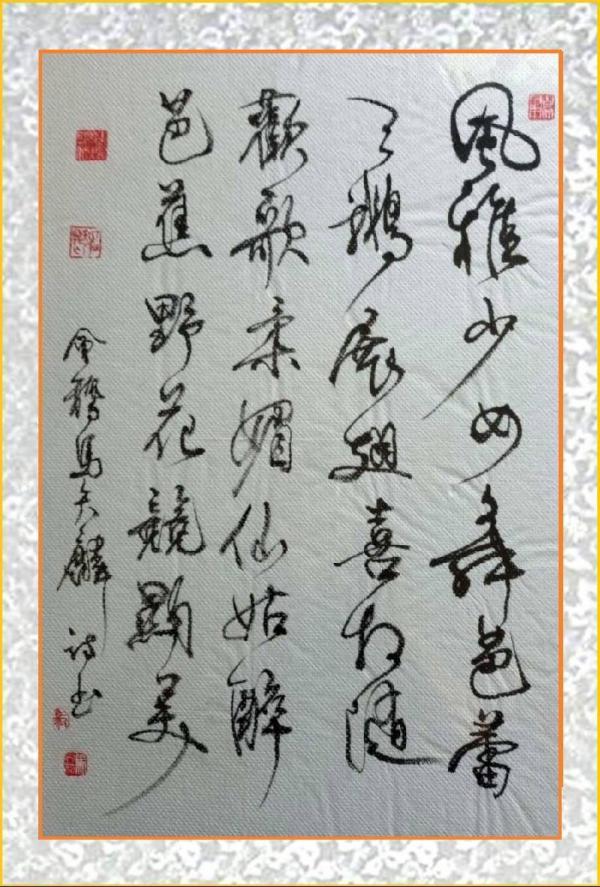 風雅少女舞芭蕾
天鵝展翅喜相隨
歡歌柔媚仙姑醉
芭蕉野花競顯美
馬天麟詩书